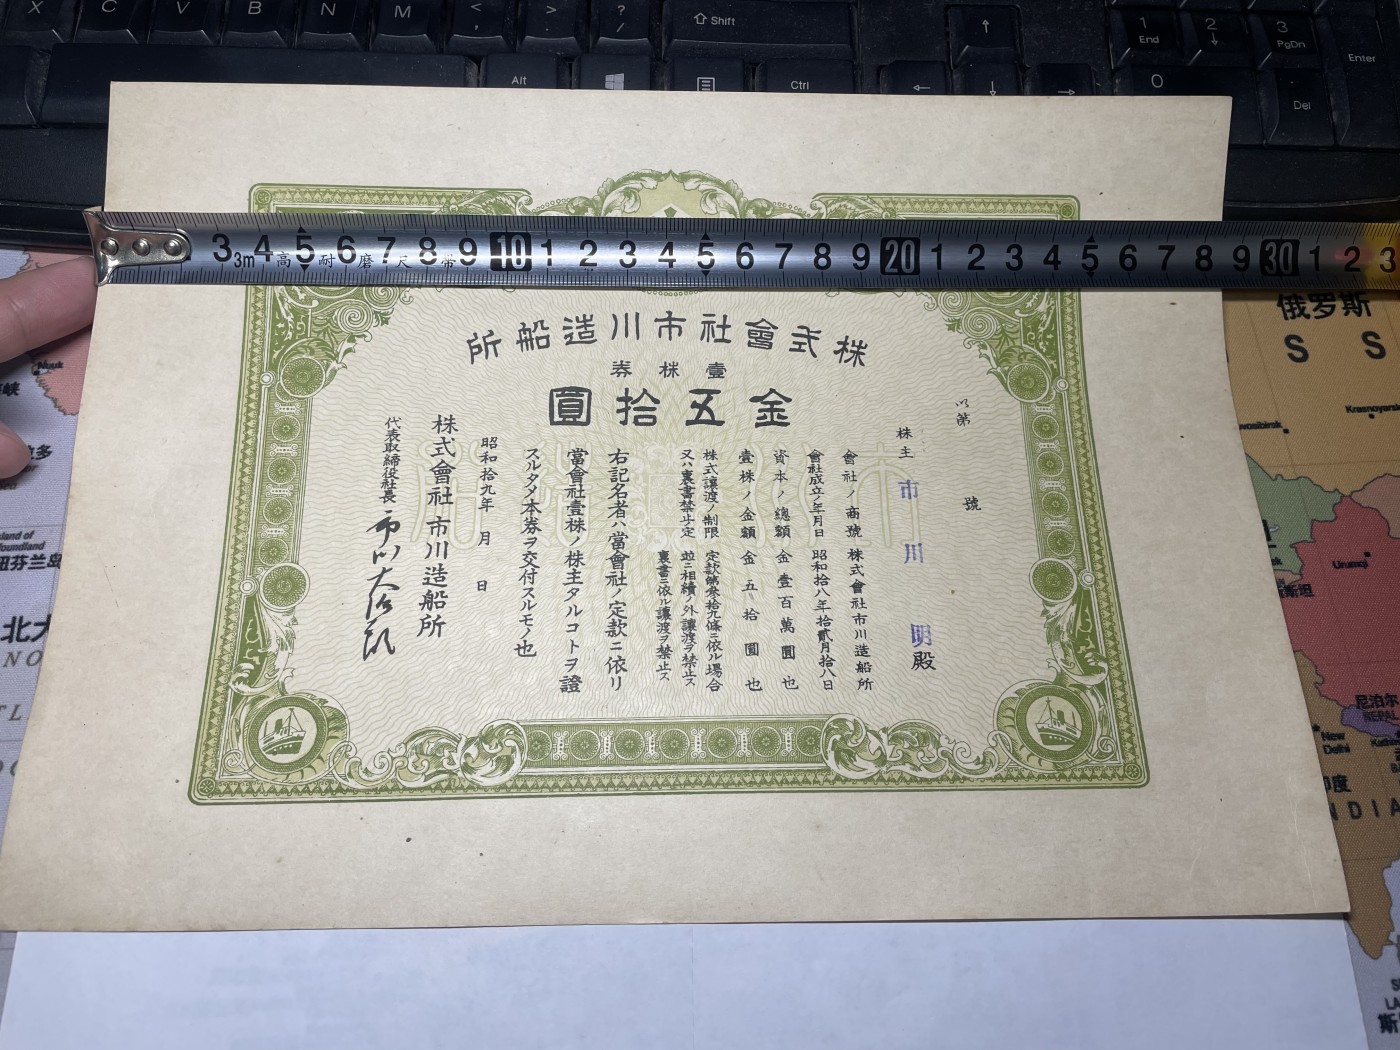 X C V B N M < , > . ? / ⇧ Shift ↑ 1 End 2 ↓ 3 PgDn Enter
Alt Ctrl ← ↓ → 0 Del
3 4 5 6 7 8 9 10 1 2 3 4 5 6 7 8 9 20 1 2 3 4 5 6 7 8 9 30 1 2 3
3m 高耐磨尺帯
株式會社市川造船所
壹株券
金五拾圓
第 號
株主 市川 明殿
會社ノ商號 株式會社市川造船所
會社成立ノ年月日 昭和拾八年拾貳月拾八日
資本ノ總額 金壹百萬圓也
壹株ノ金額 金五拾圓也
株式讓渡ノ制限 定款第參拾九條ニ依ル場合
又ハ裏書禁止ノ定 竝ニ相續ノ外讓渡ヲ禁止ス
裏書ニ依ル讓渡ヲ禁止ス
右記名者ハ當會社ノ定款ニ依リ
當會社壹株ノ株主タルコトヲ證
スルタメ本券ヲ交付スルモノ也
昭和拾九年 月 日
株式會社市川造船所
代表取締役社長
俄罗斯
S S
Krasnoyarsk
Nuuk
Urumqi
尼泊尔
NEPAL
New Delhi
印度
INDIA
纽芬兰岛
北大